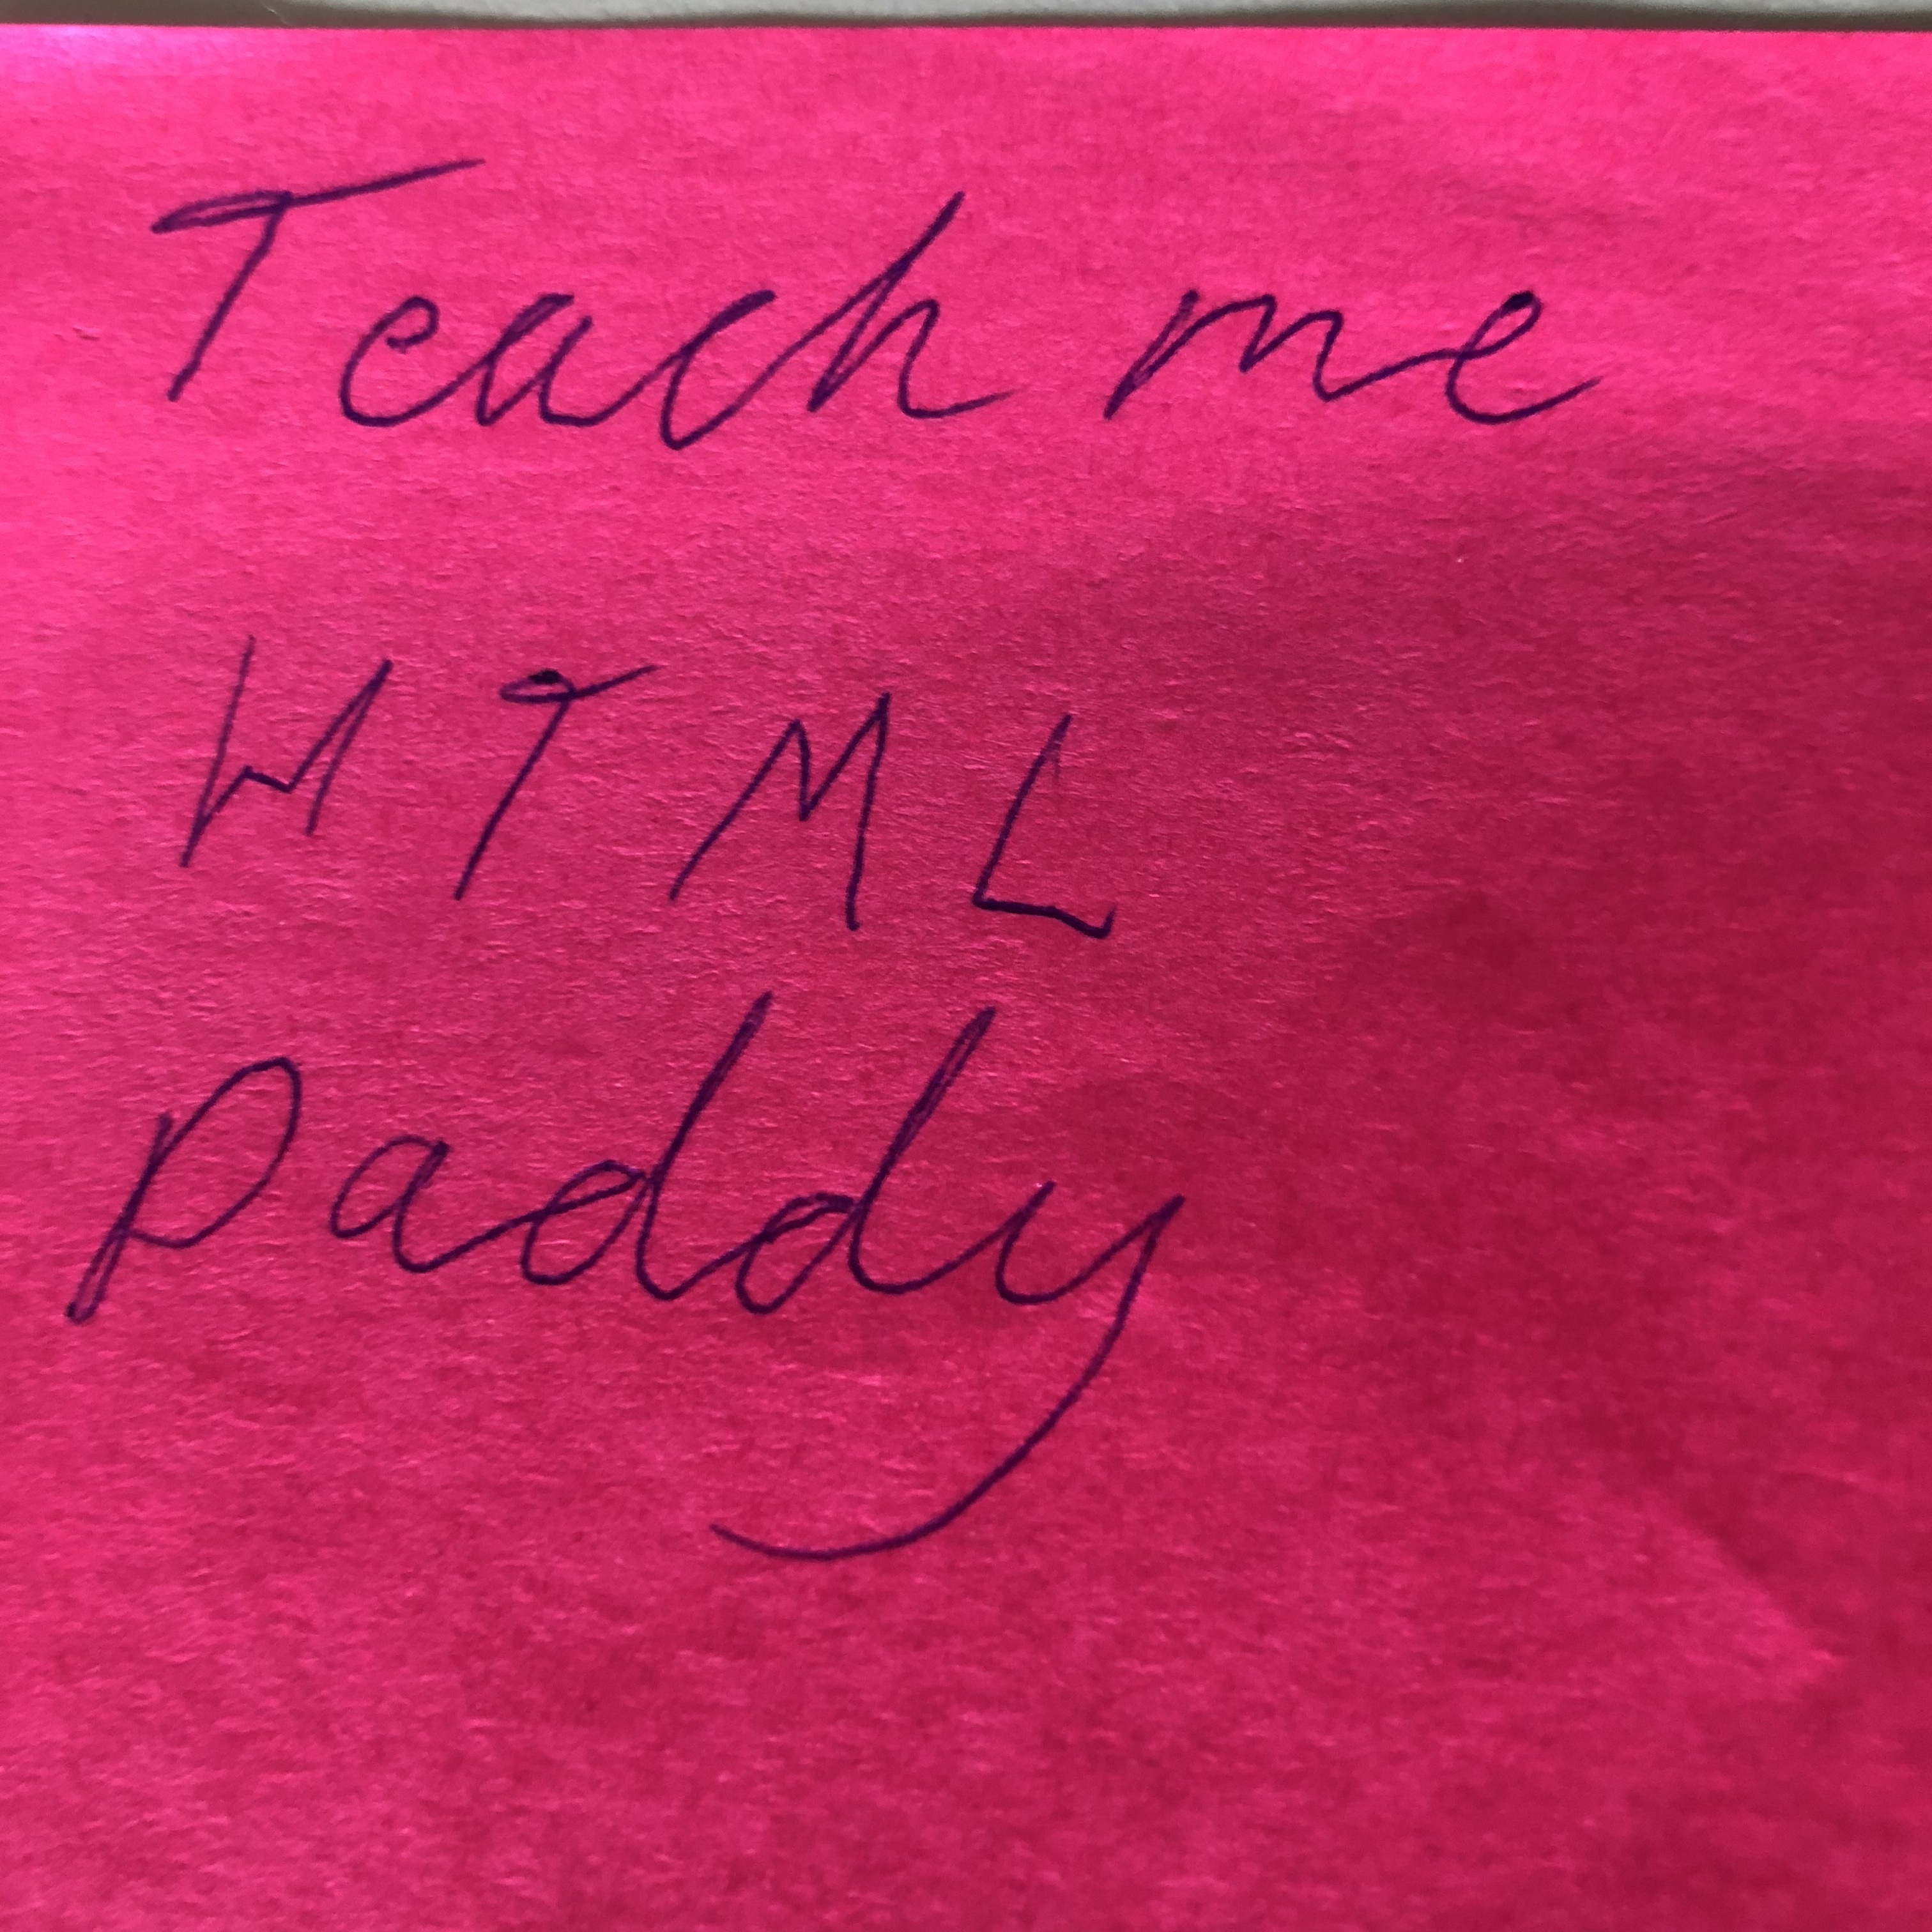 Teach me
HTML
paddy